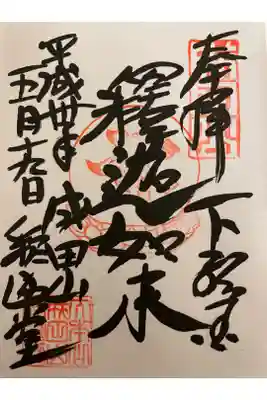 奉拝 下総国
釋迦如来
成田山 釋迦堂
平成卅年
五月十九日